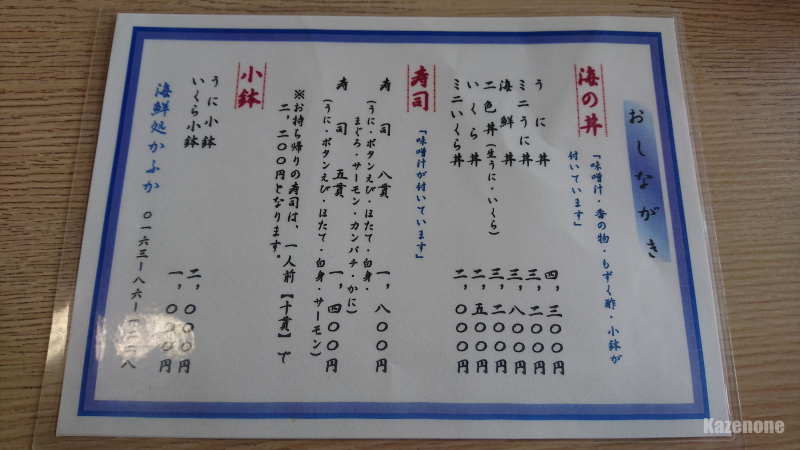 おしながき
海の丼
「味噌汁・香の物・もずく酢・小鉢が
付いています」
うに丼 四,三〇〇円
ミニうに丼 三,二〇〇円
海鮮丼 三,八〇〇円
二色丼(生うに・いくら) 三,二〇〇円
いくら丼 二,五〇〇円
ミニいくら丼 二,〇〇〇円
寿司 「味噌汁が付いています」
寿司 八貫 一,八〇〇円
(うに・ボタンえび・ほたて・白身・
まぐろ・サーモン・カンパチ・かに)
寿司 五貫 一,四〇〇円
(うに・ボタンえび・ほたて・白身・サーモン)
※お持ち帰りの寿司は、一人前【十貫】で
二,二〇〇円となります。
小鉢
うに小鉢 二,〇〇〇円
いくら小鉢 一,〇〇〇円
海鮮処かふか 〇一六三ー八六ー一二二八
Kazenone